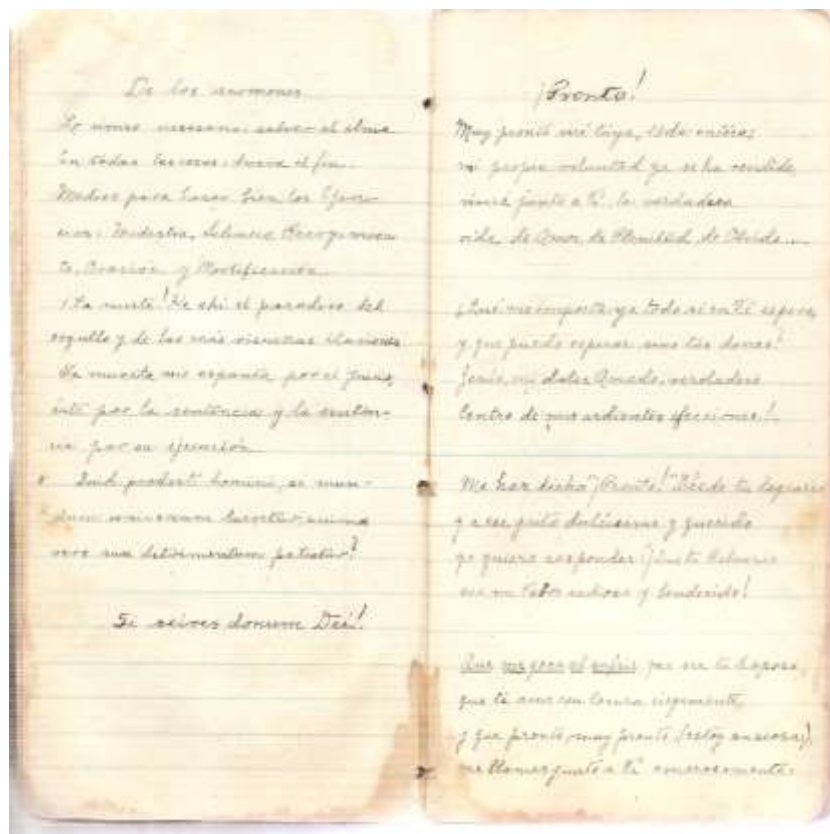 De los sermones
Lo único necesario: salvar el alma
En todas las cosas: busca el fin.
Medios para hacer bien los Ejerci-
cios: Modestia, Silencio Recogimien-
to, Oración y Mortificación.
¡La muerte! He ahí el paradero del
orgullo y de las más risueñas ilusiones
La muerte me espanta por el juicio,
éste por la sentencia y la senten-
cia por su ejecución.
Quid prodest homini, si mun-
dum universum lucretur, animae
vero suae detrimentum patiatur?
Si scires donum Dei!
¡Pronto!
Muy pronto seré tuya, toda entera;
mi propia voluntad ya se ha rendido,
viviré junto a ti, la verdadera
vida, de Amor, de Plenitud, de Olvido...
¡Qué me importa ya todo si en Ti espero,
y que puedo esperar sino tus dones!
Jesús, mi dulce Amado, verdadero
Centro de mis ardientes afecciones!
Me has dicho "¡Pronto!" Desde tu Sagrario
y a ese grito dulcísimo y querido
yo quiero responder: ¡Que tu Calvario
sea mi Tabor and y!
Que sea para ser tu Esposa,
que te ame con locura ciegamente,
y que pronto, muy pronto (estoy ansiosa),
me llames junto a Ti amorosamente.